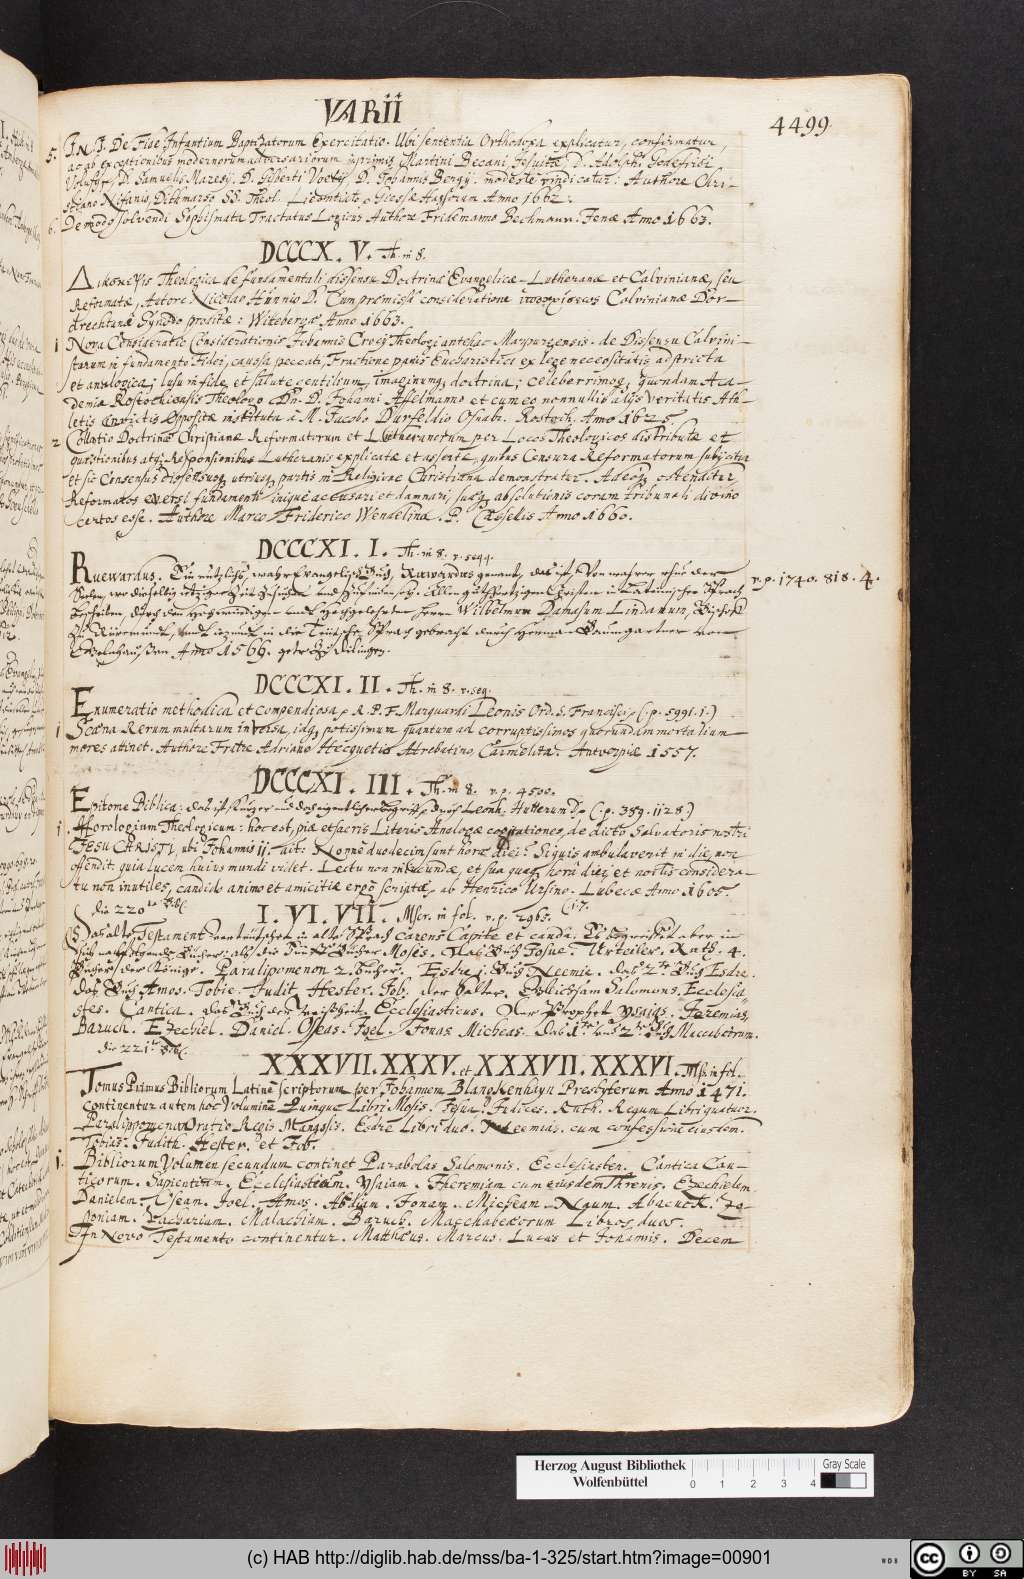 VARII
4499
5. I.N.J. De Fide Infantium Baptizatorum Exercitatio. Ubi sententia Orthodoxa explicatur, confirmatur,
ac ab exceptionibus modernorum adversariorum inprimis Martini Becani Jesuitæ, D. Adolphi Godefridi
Volusij, D. Samuelis Maresij, D. Gisberti Voetij, D. Johannis Bergij modeste vindicatur: Authore Chri-
stiano Nifanio, Dithmarso SS. Theol. Licentiato, Giessæ Hassorum Anno 1662.
6. De modo solvendi Sophismata Tractatus Logicus Authore Fridemanno Bechmann. Jenæ Anno 1663.
DCCCX. V. Th. in 8.
Διάσκεψις Theologica de fundamentali dissensu Doctrinæ Evangelicæ-Lutheranæ et Calvinianæ, seu
Reformatæ, Autore Nicolao Hunnio D. Cum præmissa consideratione Calvinianæ Dor-
drechtanâ Synodo prositæ: Witebergæ Anno 1663.
1 Nova Consideratio Considerationis Johannis Crocij Theologi antehac Marpurgensis. de Dissensu Calvini-
starum in fundamento Fidei, caussa peccati, Fractione panis Eucharistici ex lege necessitatis adstricta
et analogica; lusu in fide, et salute gentilium, imaginumq, doctrina; celeberrimoq, quondam Aca-
demiæ Rostochiensis Theologo Dn. D. Johanni Afelmanno et cum eo nonnullis alijs veritatis Ath-
letis invictis opposita instituta à M. Jacobo Durfeldio Osnabr. Rostoch. Anno 1625.
2 Collatio Doctrinæ Christianæ Reformatorum et Lutheranorum per Locos Theologicos distributæ et
quæstionibus atq; Responsionibus Lutheranis explicatæ et assertæ, quibus Censura Reformatorum subjicitur
et sic Consensus dissensusq, utriusq, partis in Religione Christiana demonstratur. Adeoq, ostenditur
Reformatos eversi fundamenti iniquè accusari et damnari, suæq, absolutionis coram tribunali divino
certos esse. Authore Marco Friderico Wendelino. P. Cassellis Anno 1660.
DCCCXI. I. Th. in 8. v. seqq.
Ruewardus. Ein nützlichs, wahr Evangelisch Buch, Ruewardus genant, das ist, Von wahrer rhue der
v. p. 1740. 818. 4.
Seelen, wie dieselbig
durch den Hochwürdigen und Hochgelehrten Herrn Wilhelmum Damasum Lindanum, Bischoff
zu Rüremund, und jezund in die Teutsche Sprach gebracht durch Herman Baumgartner von
Anno 1569. getr. zu Dilingen.
DCCCXI. II. Th. in 8. v. seq.
Enumeratio methodica et compendiosa, R. P. F. Marquardi Leonis Ord. S. Francisci, (:p. 5991. 1:)
1 Scæna Rerum multarum inversa, idq, potissimum quantum ad corruptissimos quorundam mortalium
mores atinet. Authore Fratre Adriano Hecquetio Atrebatino, Carmelita. Antverpiæ 1557.
DCCCXI. III. Th. in 8. v. p. 4500.
Epitome Biblica: das ist, kurzer und doch eigentlicher Begriff, durch Leonh. Hutterum D. (:p. 389. 1128:)
1. Horologium Theologicum: hoc est, piæ et sacris Literis Analogæ cogitationes, de dicto Salvatoris nostri
JESU CHRISTI, ubi Johannis 11. ait: Nonne duodecim sunt horæ diei? Siquis ambulaverit in die, non
offendit: quia lucem huius mundi videt. Lectu non iniucundæ, et sua quaq, hora diei et noctis considera-
tu non inutiles, candido animo et amicitiæ ergo scriptæ, ab Henrico Ursino. Lubecæ Anno 1605.
(:17.
die 220te Bibl.
I. VI. VII. Mscr. in fol. v. p. 2963.
Das alte Testament verteutschet in alte Sprach carens Capite et cauda. Es begreifft aber in
sich nachfolgende Bücher, als die Fünf Bücher Moses. Das Buch Josue. Urteiler. Ruth. 4.
Bücher der Könige. Paralipomenon 2. Bücher. Esdre 1. Buch Neemie. das 2te Buch Esdre.
das Buch Amos. Tobie. Judit. Hester. Job. der Psalter. Salomons. Ecclesia-
stes. Cantica. das Buch der Weißheit. Ecclesiasticus. Der Prophet Ysaias. Jeremias.
Baruch. Ezechiel. Daniel. Oseas. Joel. Jonas Micheas. das 1te und 2te Buch Maccabeorum.
die 221te Bibl.
XXXVII. XXXV. et XXXVII. XXXVI. Ms. in fol.
Tomus Primus Bibliorum Latinè scriptorum per Johannem Blanckenhayn Presbyterum Anno 1471.
continentur autem hoc Volumine Quinque Libri Mosis. Josue. Judices. Ruth. Regum Libri quatuor.
Paralippomenon Oratio Regis Manassis. Esdre Libri duo. Neemias. cum confessione eiusdem.
Tobias. Judith. Hester. et Job.
1. Bibliorum Volumen secundum continet Parabolas Salomonis. Ecclesiasten. Cantica Can-
ticorum. Sapientiam. Ecclesiasticum. Ysaiam. Jheremiam cum eiusdem Threnis. Ezechielem.
Danielem. Oseam. Joel. Amos. Abdiam. Jonam. Micheam. Naum. Abacuck. Zo-
foniam. Zachariam. Malachiam. Baruch. Macchabeorum Libros duos.
In Novo Testamento continentur. Matthæus. Marcus. Lucas et Johannis. Decem
Herzog August Bibliothek
Wolfenbüttel
0 1 2 3 4
Gray Scale
(c) HAB http://diglib.hab.de/mss/ba-1-325/start.htm?image=00901
WDB
cc BY SA